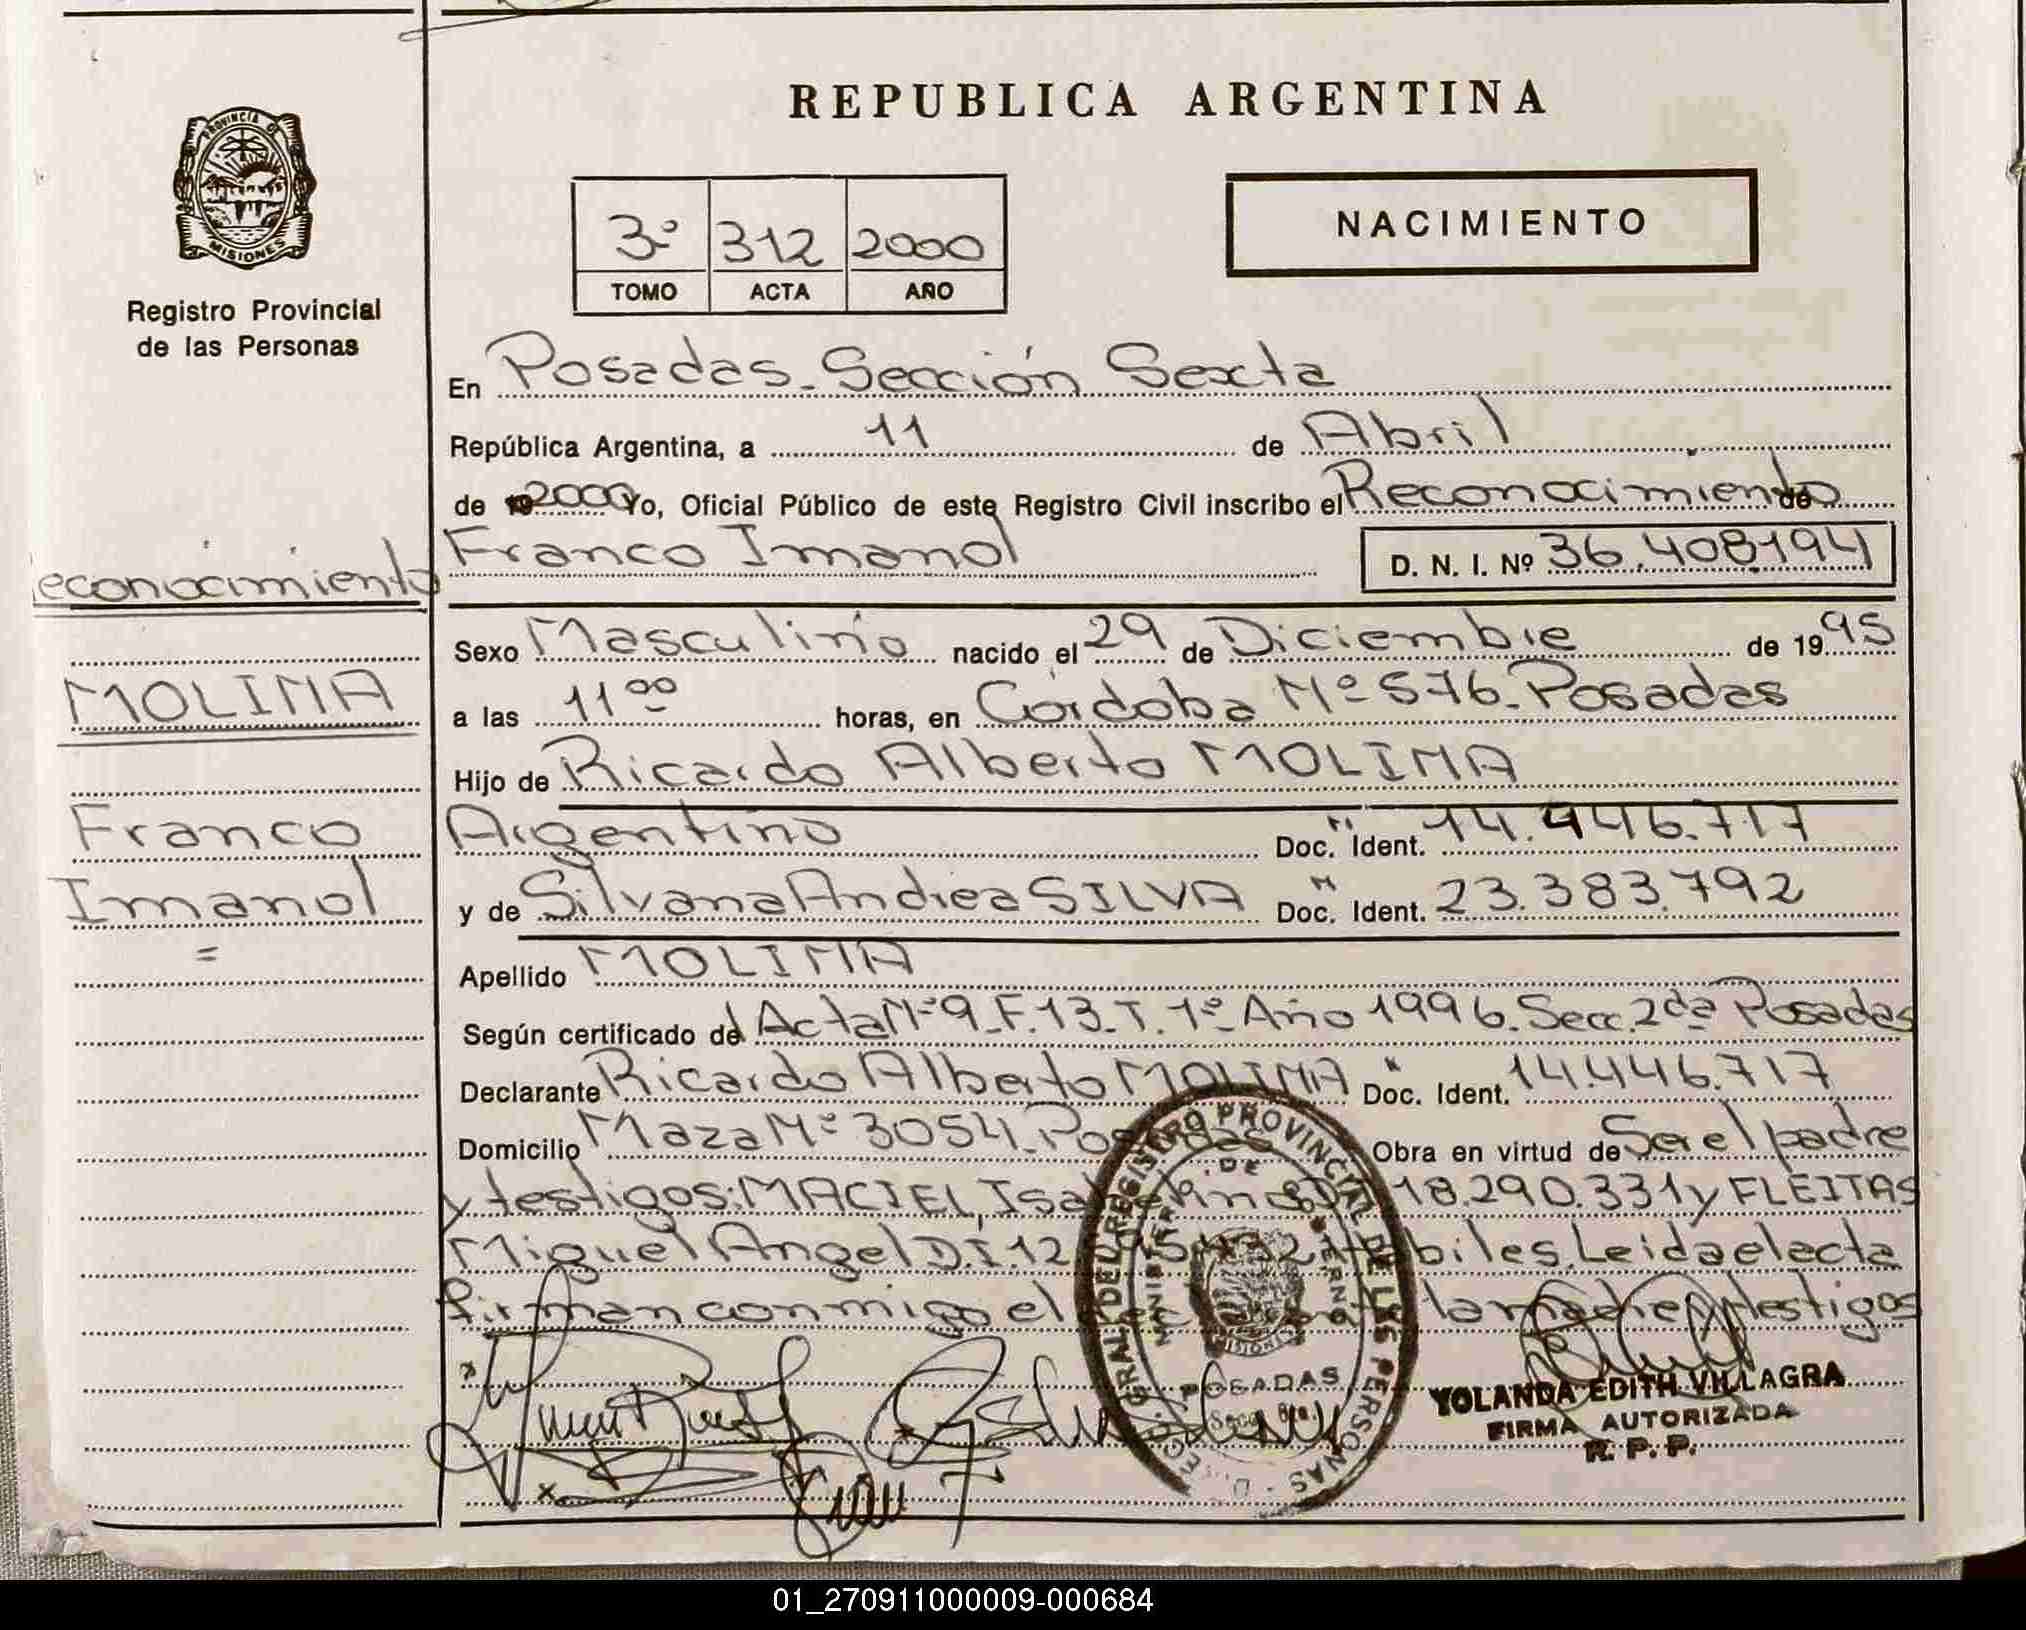 REPUBLICA ARGENTINA
PROVINCIA DE
MISIONES
Registro Provincial
de las Personas
3º 312 2000
TOMO ACTA AÑO
NACIMIENTO
En Posadas - Sección Sexta
República Argentina, a 11 de Abril
de 19 2000 Yo, Oficial Público de este Registro Civil inscribo el Reconocimiento de
Franco Imanol D. N. I. Nº 36.408.194
econocimiento
Sexo Masculino nacido el 29 de Diciembre de 19 95
MOLINA
a las 11 00 horas, en Córdoba Nº 576 - Posadas
Hijo de Ricardo Alberto MOLINA
Franco
Argentino Doc. Ident. 14.446.717
Imanol
y de Silvana Andrea SILVA Doc. Ident. 23.383.792
=
Apellido MOLINA
Según certificado de Acta Nº 9 - F. 13 - T. 1º - Año 1996. Secc. 2da Posadas
Declarante Ricardo Alberto MOLINA Doc. Ident. 14.446.717
Domicilio Maza Nº 3054 - Posadas Obra en virtud de Ser el padre
y testigos: MACIEL, 18.290.331 y FLEITAS
Miguel Angel D.I. 12 Hábiles. Leida el acta
firman conmigo el la madre y testigos
DE
REGISTRO PROVINCIAL DE LAS PERSONAS
POSADAS
YOLANDA EDITH VILLAGRA
FIRMA AUTORIZADA
R. P. P.
01_270911000009-000684